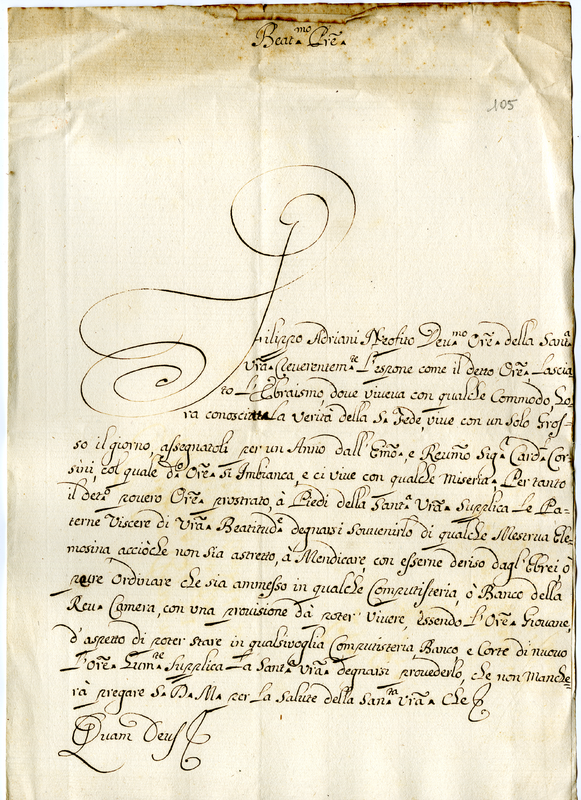 Beat.mo Pr̃e.
105
Filippo Adriani Neofito Dev.mo Or̃e della Sant.a
Vr̃a Reverentem.te L'espone come il detto Or̃e, Lascia
to L'Ebraismo, dove viveva con qualche Commodo, ho
ra conosciuta La verità della S. Fede vive con un solo Gros-
so il giorno, assegnatoli per un Anno dall'Em̃o, e Reum̃o Sig.r Card. Cor
sini, col quale d.o Or̃e Si Imbianca, e ci vive con qualche Miseria. Per tanto
il det.o povero Or̃e prostrato, à Piedi della Sant.a Vr̃a Supplica Le Pa-
terne Viscere di Vr̃a Beatitud.e degnarsi Souvenirlo di qualche Mestrua Ele
mosina acciòche non sia astretto, à Mendicare con esserne deriso dagl'Ebrei ò
pure Ordinare che sia ammesso in qualche Computisteria, ò Banco della
Reu. Camera, con una provisione dà poter Vivere, essendo L'Or̃e Giovane,
d'aspetto di poter stare in qualsivoglia Computisteria, Banco e Corte di nuovo
L'Or̃e Hum.te Supplica La Sant.a Vr̃a degnarsi provederlo, che non Manche
rà pregare S. D. M. per La Salute della San.ta Vr̃a Che
Quam Deus